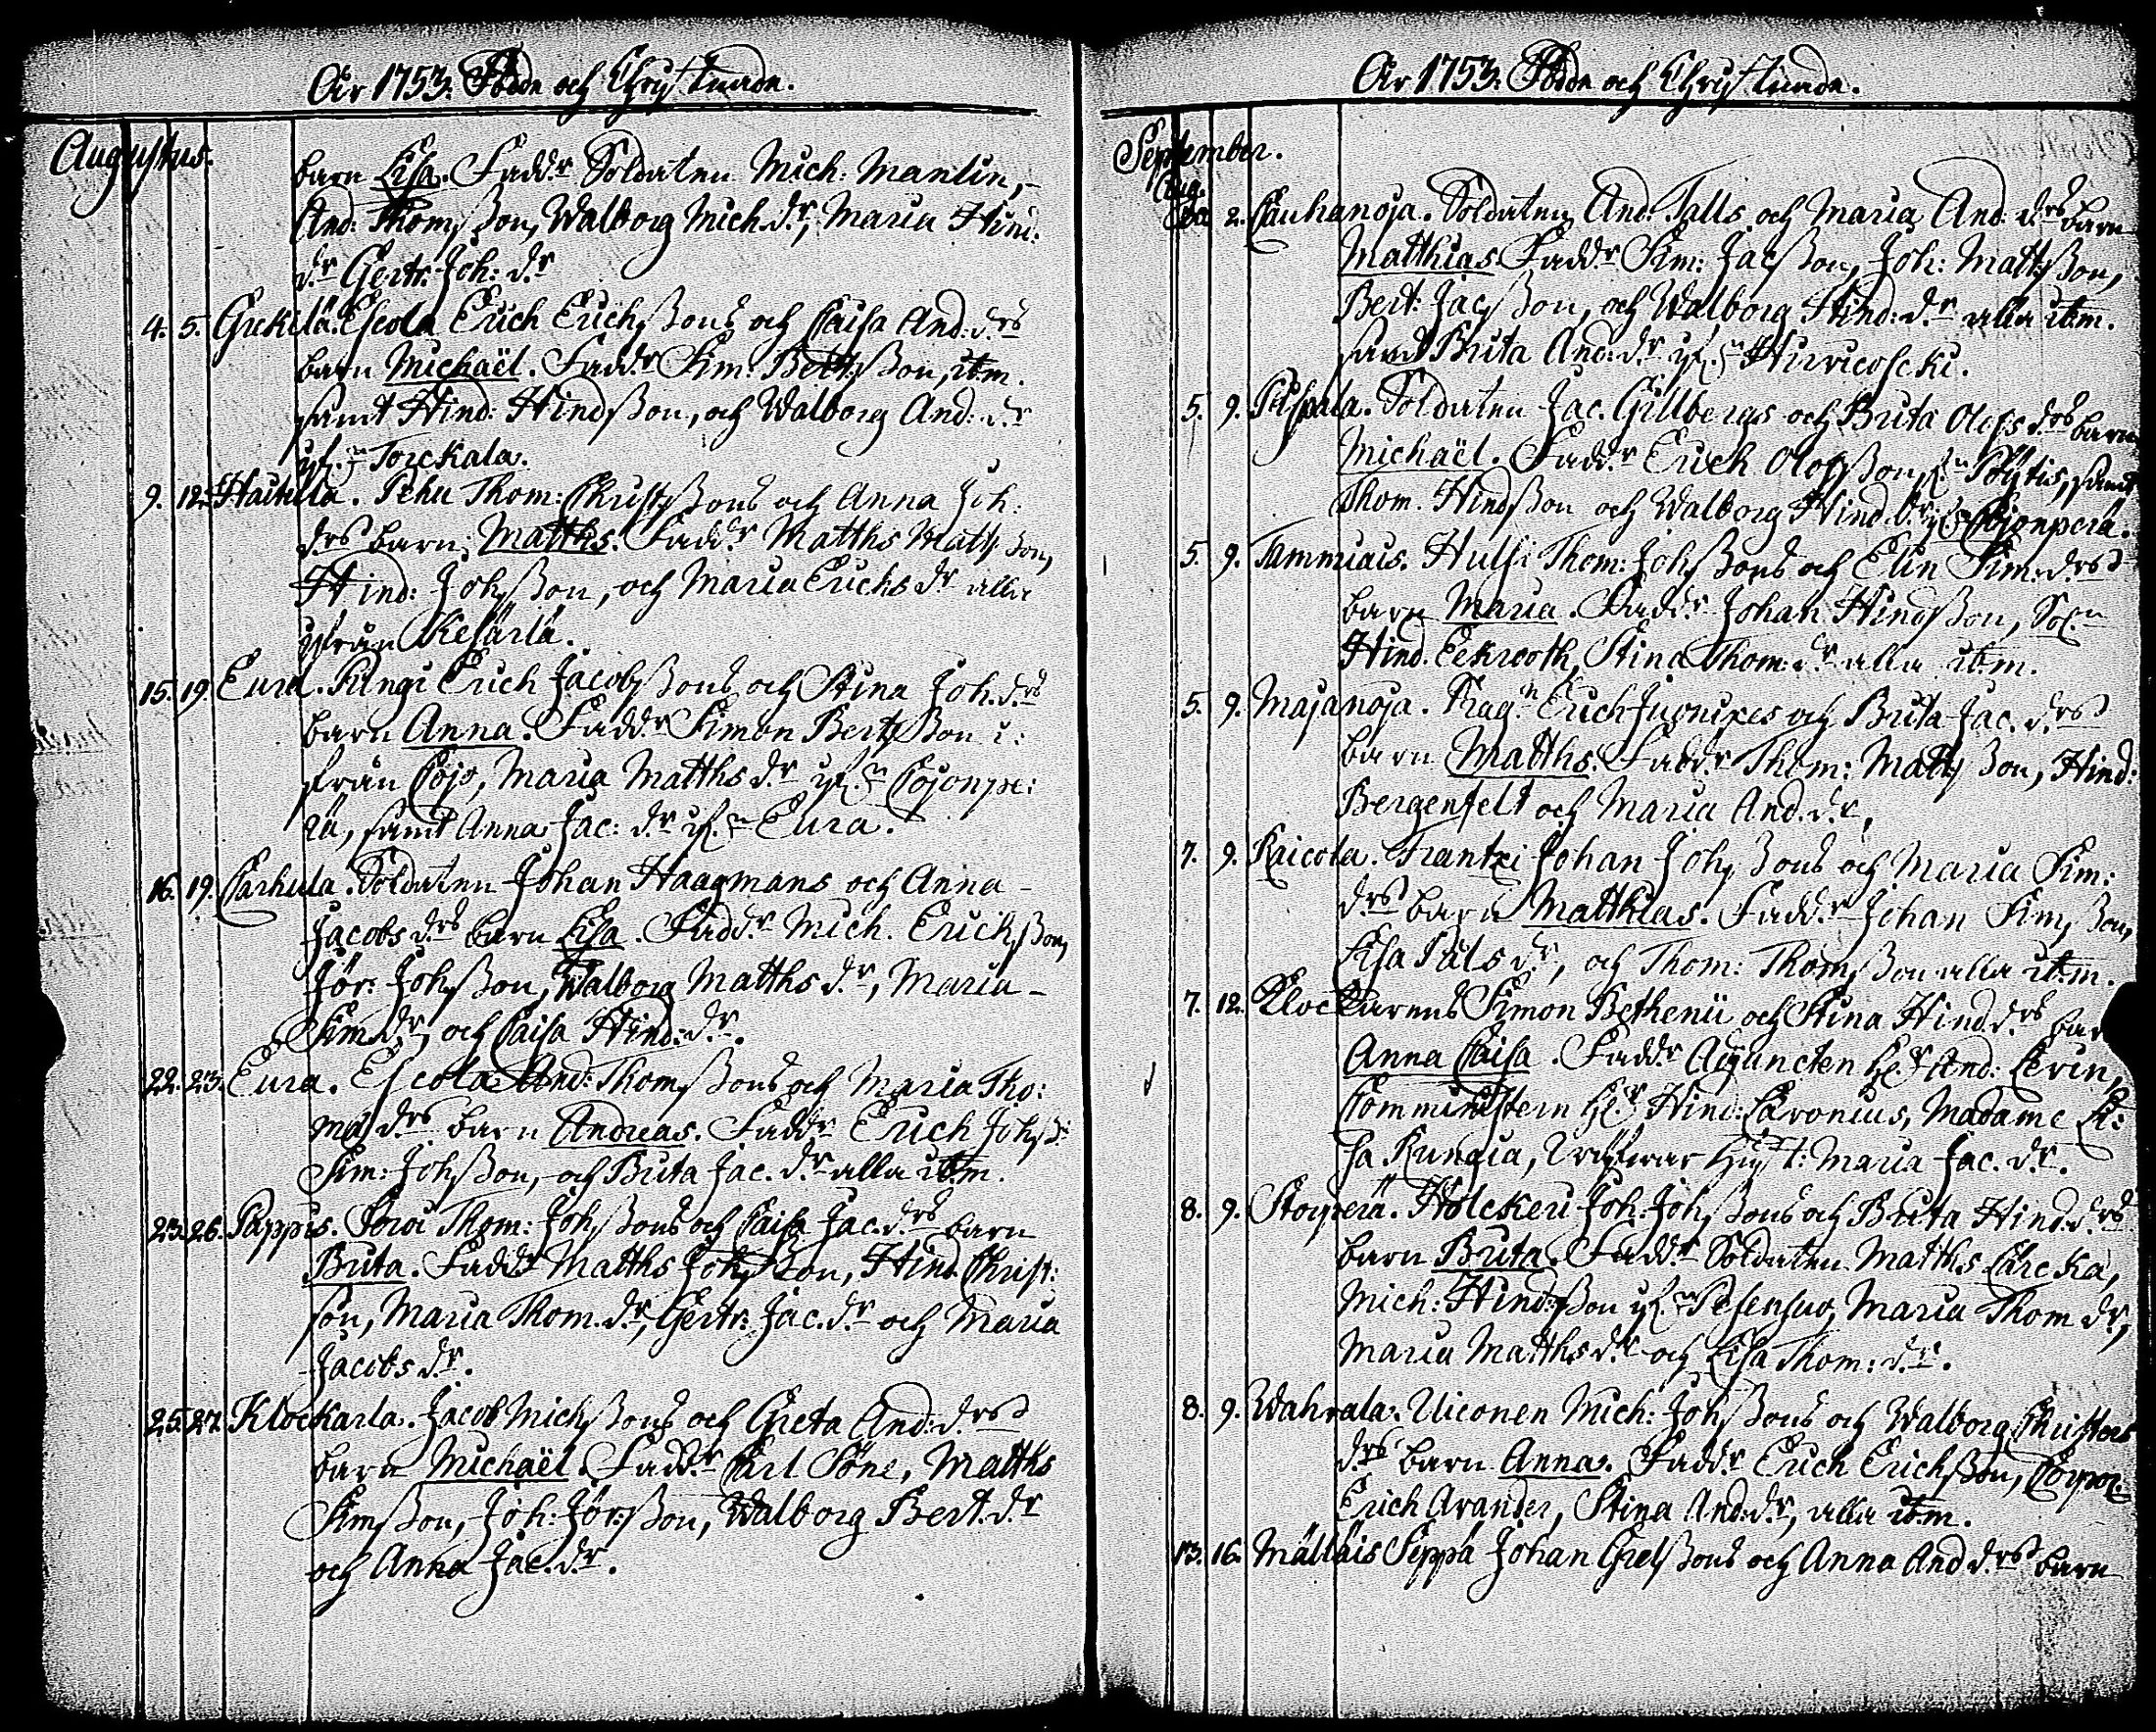 År 1753. Födde och Chrystnade.
Augustus.
barn Lisa. Fadd:r Soldaten Mich: Manlin,
And: Thomsson, Walborg Mich.d:r, Maria Hind:
d:r Gertr: Joh: d:r
4. 5. Grekilä. Escola Erich Erichssons och Caisa And: d:rs
barn Michaël. Fadd:r Sim: Bertsson, ibm.
samt Hind: Hindsson, och Walborg And: d:r
if:n Torckala.
9. 12. Haitula. Pehu Thom: Christssons och Anna Joh:
d:rs barn, Matths. Fadd:r Matths Mattsson,
Hind: Johsson, och Maria Erichs d:r alla
ifrån Kesärlä.
15. 19. Eura. Pungi Erich Jacobssons och Stina Joh. d:rs
barn Anna. Fadd:r Simon Bertsson i:
från Cojo, Maria Matths d:r if:n Cojonpe:
rä, samt Anna Jac: d:r if:n Eura.
16. 19. Carhula. Soldaten Johan Haagmans och Anna
Jacobs d:rs barn Lisa. Fadd:r Mich. Erichsson,
Jör: Johsson, Walborg Matths d:r, Maria
Sim d:r, och Caisa Hind: d:r.
22. 23. Eura. Escola And: Thomssons och Maria Tho:
mæ d:rs barn Andreas. Fadd:r Erich Johss:
Sim: Johsson, och Brita Jac. d:r alla ibm.
23. 26. Pappis. Thom: Johssons och Caisa Jac. d:rs barn
Brita. Fadd:r Matths Johsson, Hind Christ:
son, Maria Thom. d:r, Gertr: Jac. d:r och Maria
Jacobs d:r.
25. 27. Klockarla. Jacob Michssons och Greta And: d:rs
barn Michaël. Fadd:r Carl Töne, Matths
Simsson, Joh: Jör:sson, Walborg Bert. d:r
och Anna Jac. d:r.
År 1753. Födde och Chrystnade.
September.
Aug.
2. Cauhanoja. Soldaten And: Talls och Maria And: d:rs barn
Matthias. Fadd:r Sim: Jacsson, Joh: Mattsson,
Bert: Jacsson, och Walborg Hind: d:r alla ibm.
samt Brita And: d:r if:n Hirvicoski.
5. 9. Pispala. Soldaten Jac. Gillbergs och Brita Olofs d:rs barn
Michaël. Fadd:r Erich Olofsson f:n Pöytis, samt
Thom. Hindsson och Walborg Hind. d:r if:n Cojonperä.
5. 9. Tammiais. Hulsi Thom: Johssons och Elin Sim: d:rs
barn Maria. Fadd:r Johan Hindsson, Sol:n
Hind. Eekrooth, Stina Thom: d:r alla ibm.
5. 9. Majanoja. Drag:n Erich Junnixes och Brita Jac. d:rs
barn Matths. Fadd:r Thom: Mattsson, Hind:
Bergenfelt och Maria And. d:r.
7. 9. Raicola. Frantzi Johan Johssons och Maria Sim:
d:rs barn Matthias. Fadd:r Johan Simsson,
Lisa Påls d:r, och Thom: Thomsson alla ibm.
7. 12. Klockarens Simon Bethenii och Stina Hind. d:rs bar
Anna Caisa. Fadd:r Adjuncten H:r And: Lerin,
Comministern H:r Hind: Caronius, Madame Li:
sa Rungia, Maria Jac. d:r.
8. 9. Storperä. Holckeri Joh: Johssons och Brita Hind. d:rs
barn Brita. Fadd:r Soldaten Matths Carcka,
Mich: Hind:sson if:n Pesensuo, Maria Thom d:r,
Maria Matths d:r och Lisa Thom: d:r.
8. 9. Wahvala. Uiconen Mich: Johssons och Walborg Christers
d:rs barn Anna. Fadd:r Erich Erichsson, Corpor:
Erich Arander, Stina And: d:r, alla ibm.
13. 16. Mälläis Seppä Johan Grelssons och Anna And d:rs barn